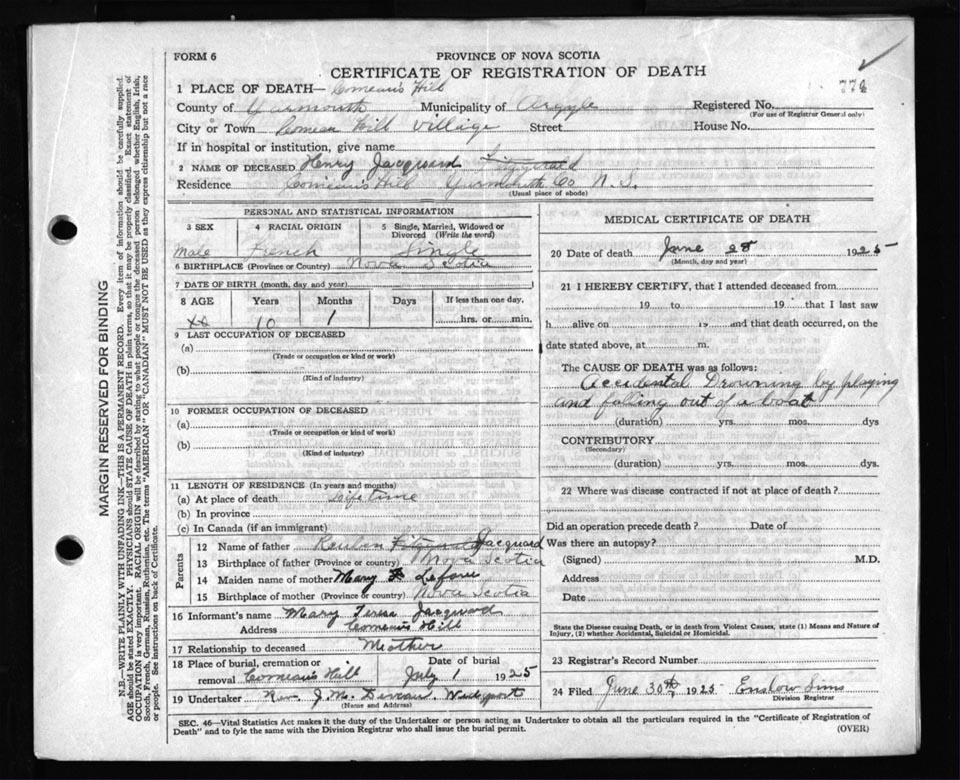 FORM 6
PROVINCE OF NOVA SCOTIA
CERTIFICATE OF REGISTRATION OF DEATH
1 PLACE OF DEATH— Comeau's Hill
County of Yarmouth Municipality of Argyle Registered No.
(For use of Registrar General only)
City or Town Comeau Hill Village Street House No.
If in hospital or institution, give name
2 NAME OF DECEASED Henry Jacquard Fitzgerald
Residence Comeau's Hill Yarmouth Co N.S.
(Usual place of abode)
PERSONAL AND STATISTICAL INFORMATION
3 SEX 4 RACIAL ORIGIN 5 Single, Married, Widowed or Divorced (Write the word)
Male French Single
6 BIRTHPLACE (Province or Country) Nova Scotia
7 DATE OF BIRTH (month, day and year)
8 AGE Years Months Days If less than one day,
10 1 hrs. or min.
9 LAST OCCUPATION OF DECEASED
(a)
(Trade or occupation or kind of work)
(b)
(Kind of industry)
10 FORMER OCCUPATION OF DECEASED
(a)
(Trade or occupation or kind of work)
(b)
(Kind of industry)
11 LENGTH OF RESIDENCE (In years and months)
(a) At place of death Lifetime
(b) In province
(c) In Canada (if an immigrant)
Parents
12 Name of father Reuben Fitzgerald Jacquard
13 Birthplace of father (Province or country) Nova Scotia
14 Maiden name of mother Mary
15 Birthplace of mother (Province or country) Nova Scotia
16 Informant's name Mary Teresa Jacquard
Address Comeau's Hill
17 Relationship to deceased Mother
18 Place of burial, cremation or removal Comeau's Hill Date of burial July 1 1925
19 Undertaker Rev. J.M.
(Name and Address)
MEDICAL CERTIFICATE OF DEATH
20 Date of death June 28 1925
(Month, day and year)
21 I HEREBY CERTIFY, that I attended deceased from
19 to 19 that I last saw
h alive on 19 and that death occurred, on the
date stated above, at m.
The CAUSE OF DEATH was as follows:
Accidental Drowning by playing
and falling out of a boat
(duration) yrs. mos. dys
CONTRIBUTORY
(Secondary)
(duration) yrs. mos. dys.
22 Where was disease contracted if not at place of death?
Did an operation precede death? Date of
Was there an autopsy?
(Signed) M.D.
Address
Date
State the Disease causing Death, or in death from Violent Causes, state (1) Means and Nature of
Injury, (2) whether Accidental, Suicidal or Homicidal.
23 Registrar's Record Number
24 Filed June 30th 1925 Enslow Sims
Division Registrar
SEC. 46—Vital Statistics Act makes it the duty of the Undertaker or person acting as Undertaker to obtain all the particulars required in the "Certificate of Registration of
Death" and to fyle the same with the Division Registrar who shall issue the burial permit.
(OVER)
MARGIN RESERVED FOR BINDING
N.B.—WRITE PLAINLY WITH UNFADING INK—THIS IS A PERMANENT RECORD. Every item of information should be carefully supplied.
AGE should be stated EXACTLY. PHYSICIANS should STATE CAUSE OF DEATH in plain terms, so that it may be properly classified. Exact statement of
OCCUPATION is very important. RACIAL ORIGIN will be described by stating to what people or tongue the deceased person belonged whether English, Irish,
Scotch, French, German, Russian, Ruthenian, etc. The terms "AMERICAN" OR "CANADIAN" MUST NOT BE USED as they express citizenship but not a race
or people. See instructions on back of Certificate.